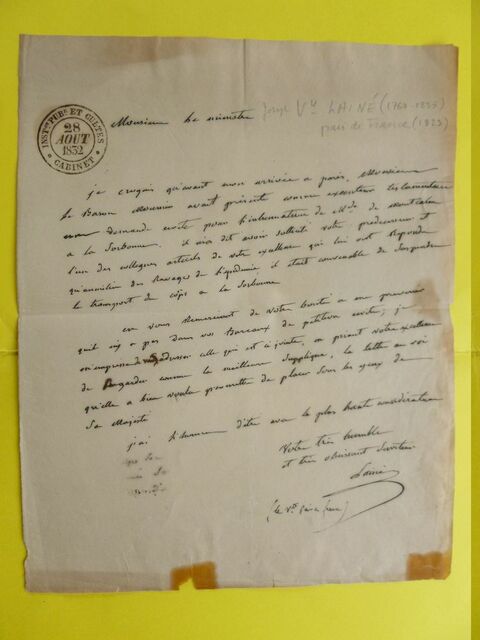 INST.on PUB.e ET CULTES
28
AOUT
1832
* CABINET *
Monsieur le ministre
Joseph Vte LAINÉ (1768-1835)
pair de France (1823)
je croyais qu'avant mon arrivée a paris, Monsieur
le Baron Mounier avait présenté comme executeur testamentaire
demande écrite pour l'inhumation de M.de de Montcalm
a la Sorbonne. il m'a dit avoir sollicité votre prédécesseur et
l'un des collegues actuels de votre excellence qui lui ont répondu
qu'au milieu des Ravages de l'épidémie, il etait convenable de Suspendre
le transport du corps a la Sorbonne
en vous Remerciant de votre bonté a me prevenir
qu'il n'y a pas dans vos Bureaux de petition écrite; je
m'empresse d'adresser celle qui est ci jointe, en priant votre excellence
de Regarder comme la meilleure Supplique, la lettre au roi
qu'elle a bien voulu promettre de placer sous les yeux de
Sa Majesté
j'ai l'honneur d'être avec la plus haute considération
Votre très humble
et très obeissant Serviteur
Lainé
(le Vte pair de france)